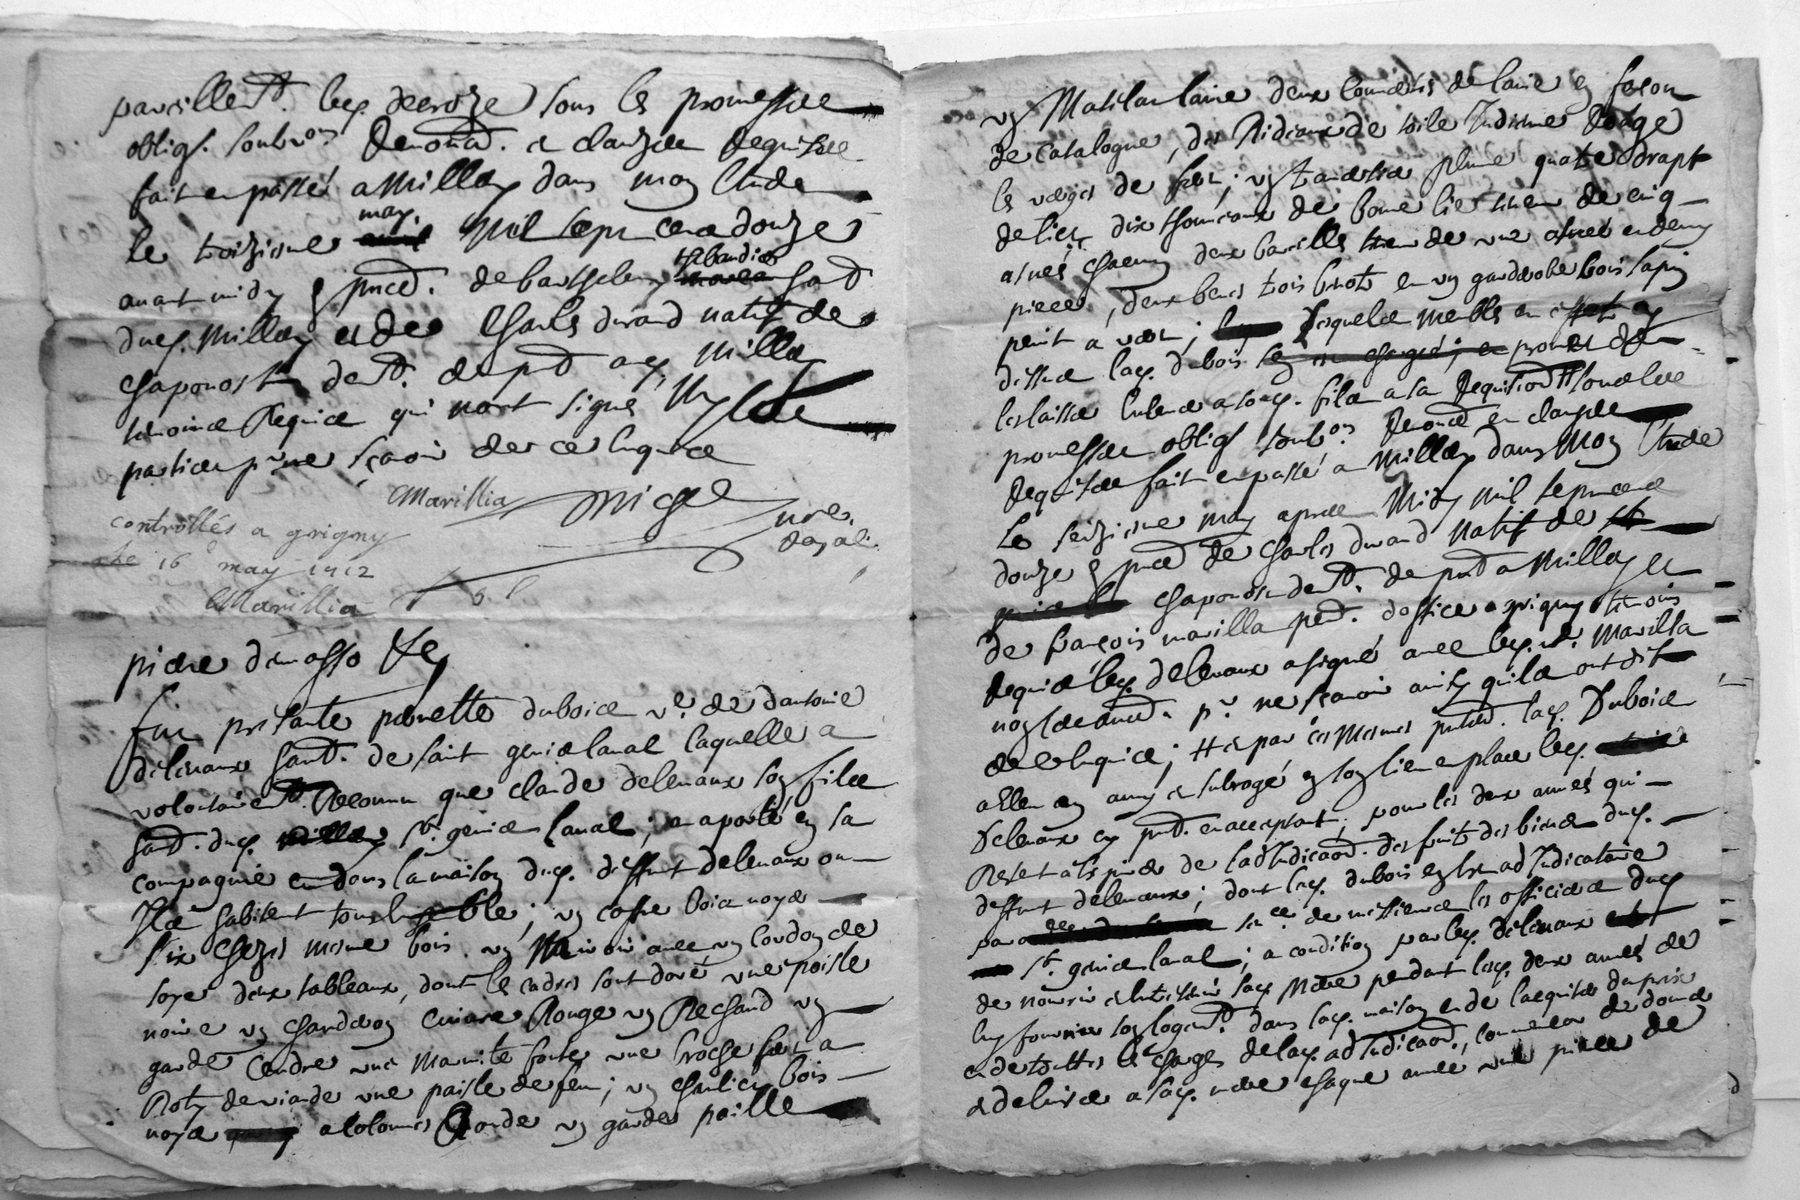 pareillemt. led. deroze sous les promesses
obligs. soubson Renond. et clauses Requises
fait et passé a Millery dans mon Etude
le troizieme may mil sept cent douze
avant midy p nced. de barthelemy habandier hand
dud. Millery et de Charles durand natif de
Chaponost demt. de pnt aud. Millery
temoins Requis qui nont signé ny lesd.
parties pr. ne sçavoir de ce Enquis
Marillia Michel nore. Royal
controllés a grigny
le 16e may 1712
Marillia
pierre demasso &c
fut presante pernette dubois ve. de d'antoine
delenaux hand. de saint genis laval laquelle a
volontairemt. Reconnu que claude delenaux son fils
hand. dud. st. genis laval; a aporté en sa
compagnie et dans la maison dud. deffunt delenaux ou
Ils habitent tous; un coffre bois noyer
six chezes mesme bois un Miroir avec un Cordon de
soye deux tableaux, dont les cadres sont doré une poisle
noire un chauderon Cuivre Rouge un Rechaud un
garde Cendre une Marmite fonte une broche fer a
Roty de viande une paisle de feu; un chalict bois
noyer a Colonnes Ronde un garde paille
un Matelas laine deux Couvertes de laine en façon
de catalogne, des Rideaux de toile Indienne Rouge
les verges de fer; un traversier plume quatre draps
de lict, dix thonneaux de bonne lie tenant de cinq
asnés Chacun deux bareilles de une asnée et demy
piece, deux bancs trois benots et un garderobe bois sapin
peint a verd; lesquels meubles et effets cy
dessus lad. dubois promet de
les laisser Enlever a sond. fils a sa Requisition soubs les
promesses obligs soubson Renond et clauses
Requises fait et passé a Millery dans Mon Etude
Le seizieme may apres Midy mil sept cent
douze p nced de Charles durand Natif de
chaponost demt. de pnt a Millery et
de françois marillia pcd. d'office a grigny temoins
Requis led. delenaux a signé avec led. sr. Marillia
non led. durand. pr. ne sçavoir ainsy quils ont dit
de ce Enquis; et par ces Mesmes pntes. lad. Dubois
a Elle en mis et subrogé en son lieu et place led.
Delenaux cy pnt. et acceptant, pour les deux annés qui
Restent a Expirer de l'adjudicaon. des fruits des biens dud.
deffunt delenaux; dont lad. dubois est adjudicataire
par sence de messieurs les officiers dud
st. genis laval; a condition par led. delenaux
de nourir et Entretenir sad. Mere pendant lesd. deux annés de
luy fournir son logemt. dans lad. maison et de l'acquiter du prix
et de touttes les Charges de lad. adjudicaon., comme aussy de donner
et delivrer a sad. mere chaque année une piece de